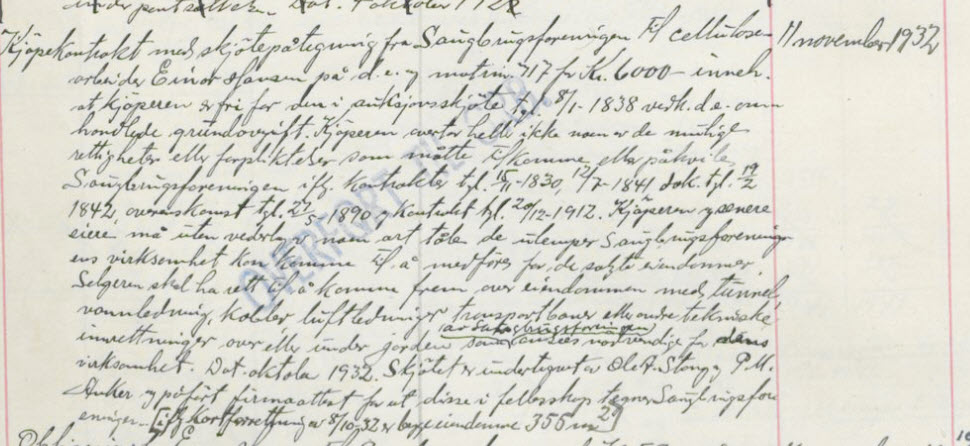 under pantsetteren. Dat. 1 oktober 192
Kjøpekontrakt med skjøtepåtegning fra Saugbrugsforeningen til cellulose- 11 november 1932
arbeider Einar Hansen på d. e. og matrnr. 717 for Kr. 6000- inneh.
at kjøperen er fri for den i auksjonsskjøte tgl. 8/1-1838 vedk. d. e. om-
handlede grundavgift. Kjøperen overtar heller ikke noen av de mulige
rettigheter eller forplikteser som måtte tilkomme eller påhvile
Saugbrugsforeningen ifg. kontrakter tgl. 15/11-1830, 12/7-1841 dok. tgl. 19/2
1842, overenskomst tgl. 27/5-1890 og kontrakt tgl. 20/12-1912. Kjøperen og senere
eiere må uten vederlag av noen art tåle de ulemper Saugbrugsforening-
ens virksomhet kan komme til å medføre for de solgte eiendommer.
Selgeren skal ha rett til å komme frem over eiendommen med tunnel,
vannledning, kabler luftledninger transportbaner eller andre tekniske
av Saugbrugsforeningen
innretninger over eller under jorden som ansees nødvendige for dens
virksomhet. Dat. oktober 1932. Skjøtet er undertegnet av Ole A. Stang og P. M.
Anker og påført firmaattest for at disse i fellesskap tegner Saugbrugsfore
eningen. [ifg. Kartforretning av 8/10-32 er begge eiendomme 355 m²]
OVERFØRT